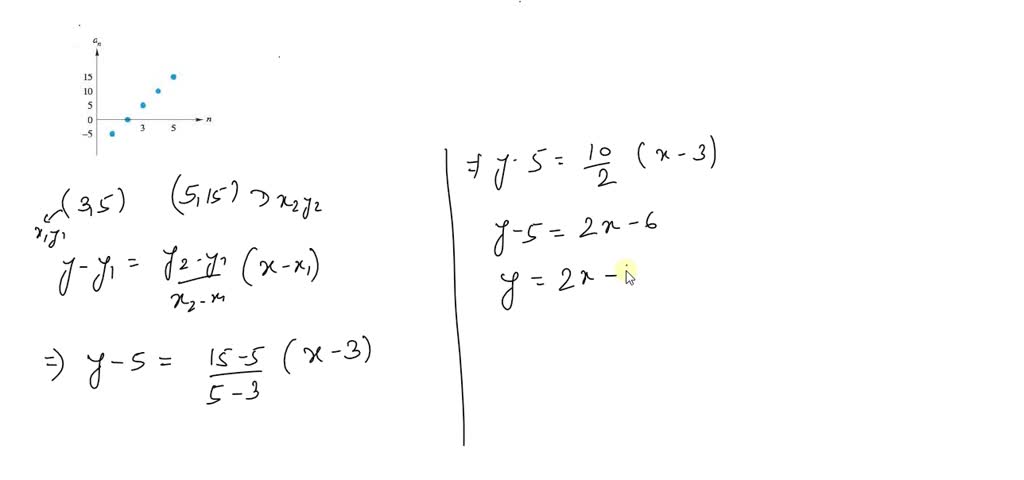 aₙ
15
10
5
0
-5
3 5 n
(3,5) (5,15) → x₂y₂
x₁y₁
y-y₁ = \frac{y₂-y₁}{x₂-x₁} (x-x₁)
⇒ y-5 = \frac{15-5}{5-3} (x-3)
⇒ y-5 = \frac{10}{2} (x-3)
y-5 = 2x-6
y = 2x-